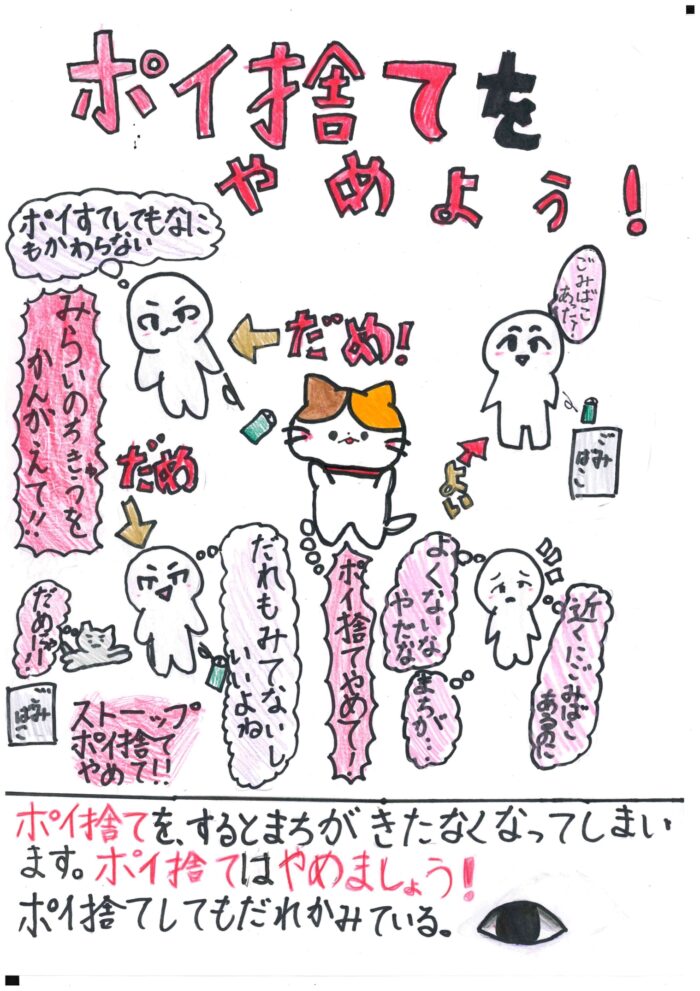 ポイ捨てを
やめよう!
ポイすてしてもなに
もかわらない
ごみばこ
あった!
だめ!
みらいのちきゅうを
かんがえて!!
だめ
よい
ごみ
ばこ
だれもみてないし
いいよね
ポイ捨てやめて!
よくないな
やだな
まちが…
近くにごみばこ
あるのに
だめー!!
ごみ
ばこ
ストーップ
ポイ捨て
やめて!!
ポイ捨てを、するとまちがきたなくなってしまい
ます。ポイ捨てはやめましょう!
ポイ捨てしてもだれかみている。